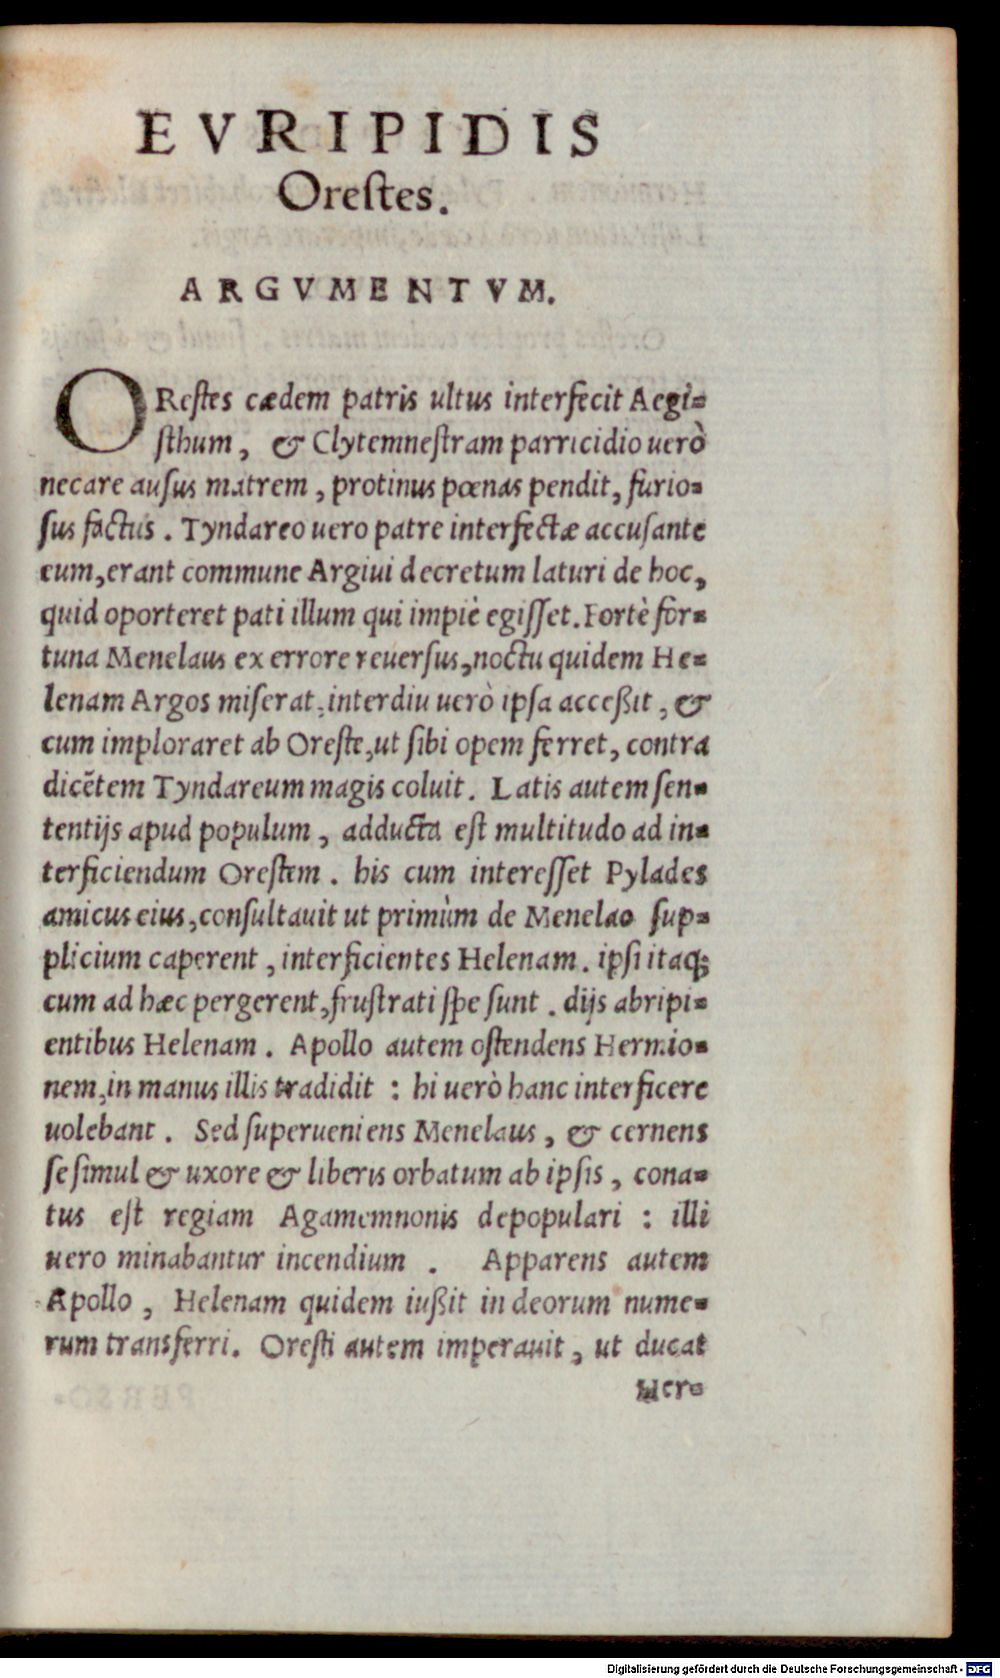 EVRIPIDIS
Orestes.
ARGVMENTVM.
ORestes cædem patris ultus interfecit Aegi=
sthum, & Clytemnestram parricidio uerò
necare ausus matrem, protinus pœnas pendit, furio=
sus factus. Tyndareo uero patre interfectæ accusante
eum, erant commune Argiui decretum laturi de hoc,
quid oporteret pati illum qui impiè egisset. Fortè for=
tuna Menelaus ex errore reuersus, noctu quidem He=
lenam Argos miserat, interdiu uerò ipsa acceßit, &
cum imploraret ab Oreste, ut sibi opem ferret, contra
dicẽtem Tyndareum magis coluit. Latis autem sen=
tentijs apud populum, adducta est multitudo ad in=
terficiendum Orestem. his cum interesset Pylades
amicus eius, consultauit ut primùm de Menelao sup=
plicium caperent, interficientes Helenam. ipsi itaq;
cum ad hæc pergerent, frustrati spe sunt. dijs abripi=
entibus Helenam. Apollo autem ostendens Hermio=
nem, in manus illis tradidit : hi uerò hanc interficere
uolebant. Sed superueniens Menelaus, & cernens
se simul & uxore & liberis orbatum ab ipsis, cona=
tus est regiam Agamemnonis depopulari : illi
uero minabantur incendium. Apparens autem
Apollo, Helenam quidem iußit in deorum nume=
rum transferri. Oresti autem imperauit, ut ducat
Her=
Digitalisierung gefördert durch die Deutsche Forschungsgemeinschaft - DFG